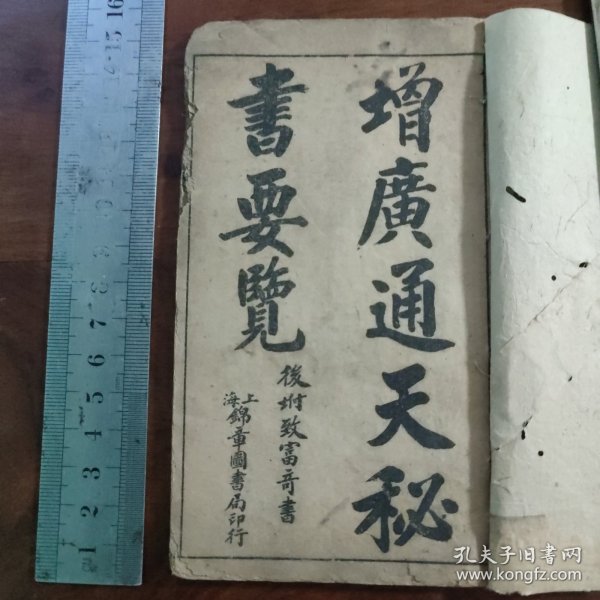 增廣通天秘
書要覽
後坿致富奇書
上海錦章圖書局印行
1 2 3 4 5 6 7 8 9 10 11 12 13 14 15 16
孔夫子旧书网
www.kongfz.com